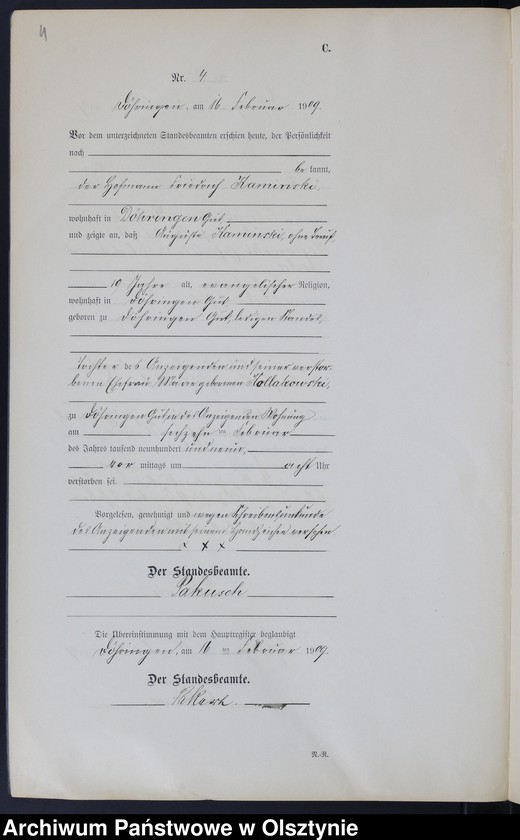 4
C.
Nr. 4
Döhringen, am 16. Februar 1909.
Vor dem unterzeichneten Standesbeamten erschien heute, der Persönlichkeit
nach
be kannt,
der Hofmann Friedrich Kaminski,
wohnhaft in Döhringen Gut,
und zeigte an, daß Auguste Kaminski, ohne Beruf,
19 Jahre alt, evangelischer Religion,
wohnhaft in Döhringen Gut
geboren zu Döhringen Gut, ledigen Standes,
Tochter des Anzeigenden und seiner verstor-
benen Ehefrau Marie geborenen Kollakowski,
zu Döhringen Gut in des Anzeigenden Wohnung
am sechzehnten Februar
des Jahres tausend neunhundert und neun,
vor mittags um acht Uhr
verstorben sei.
Vorgelesen, genehmigt und wegen Schreibensunkunde
des Anzeigenden mit seinem Handzeichen versehen
x x x
Der Standesbeamte.
Pakusch
Die Übereinstimmung mit dem Hauptregister beglaubigt
Döhringen, am 16 ten Februar 1909.
Der Standesbeamte.
N.-R.
Archiwum Państwowe w Olsztynie